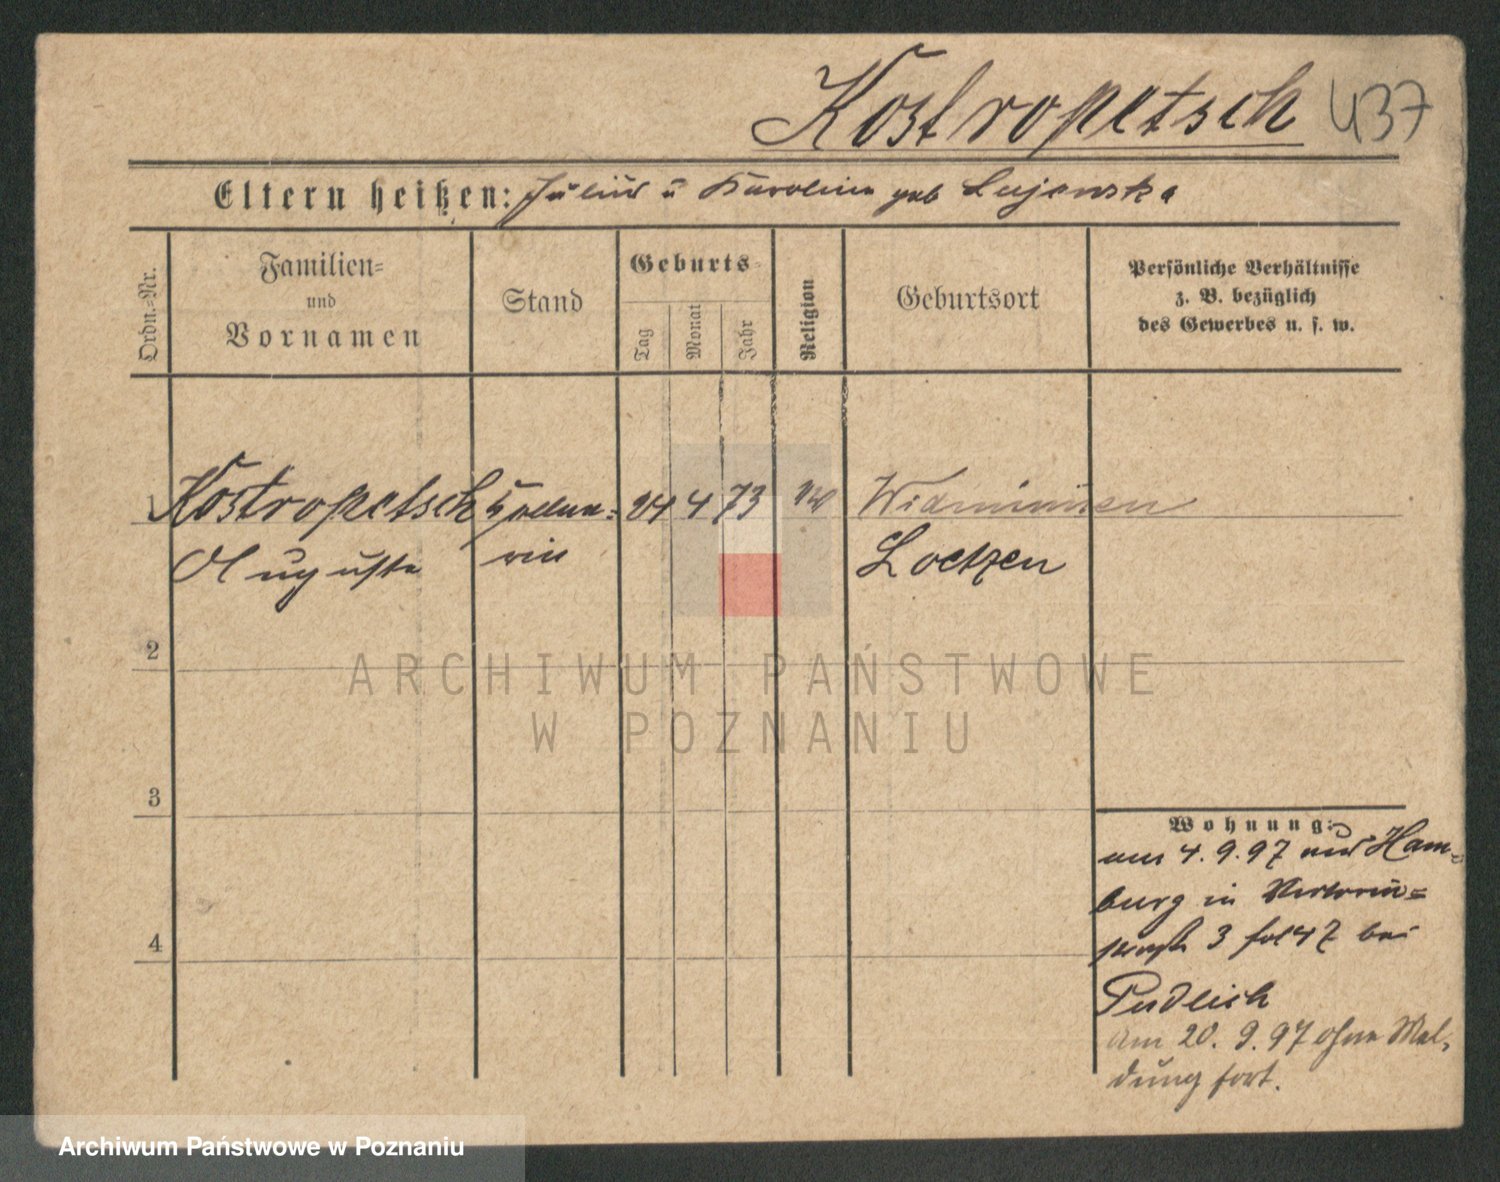 Kostropetsch 437
Eltern heißen: Julius u Karoline geb Lujanska
Ordn.=Nr.
Familien=
und
Vornamen
Stand
Geburts=
Tag
Monat
Jahr
Religion
Geburtsort
Persönliche Verhältnisse
z. B. bezüglich
des Gewerbes u. s. w.
1 Kostropetsch Kellne= 24 4 73 Widminnen
Auguste rin Loetzen
2
ARCHIWUM PAŃSTWOWE
W POZNANIU
3
4
Wohnung:
am 4.9.97 aus Ham=
burg in
3 bei
Pudlich
Am 20. 9. 97 ohne Mel=
dung fort.
Archiwum Państwowe w Poznaniu